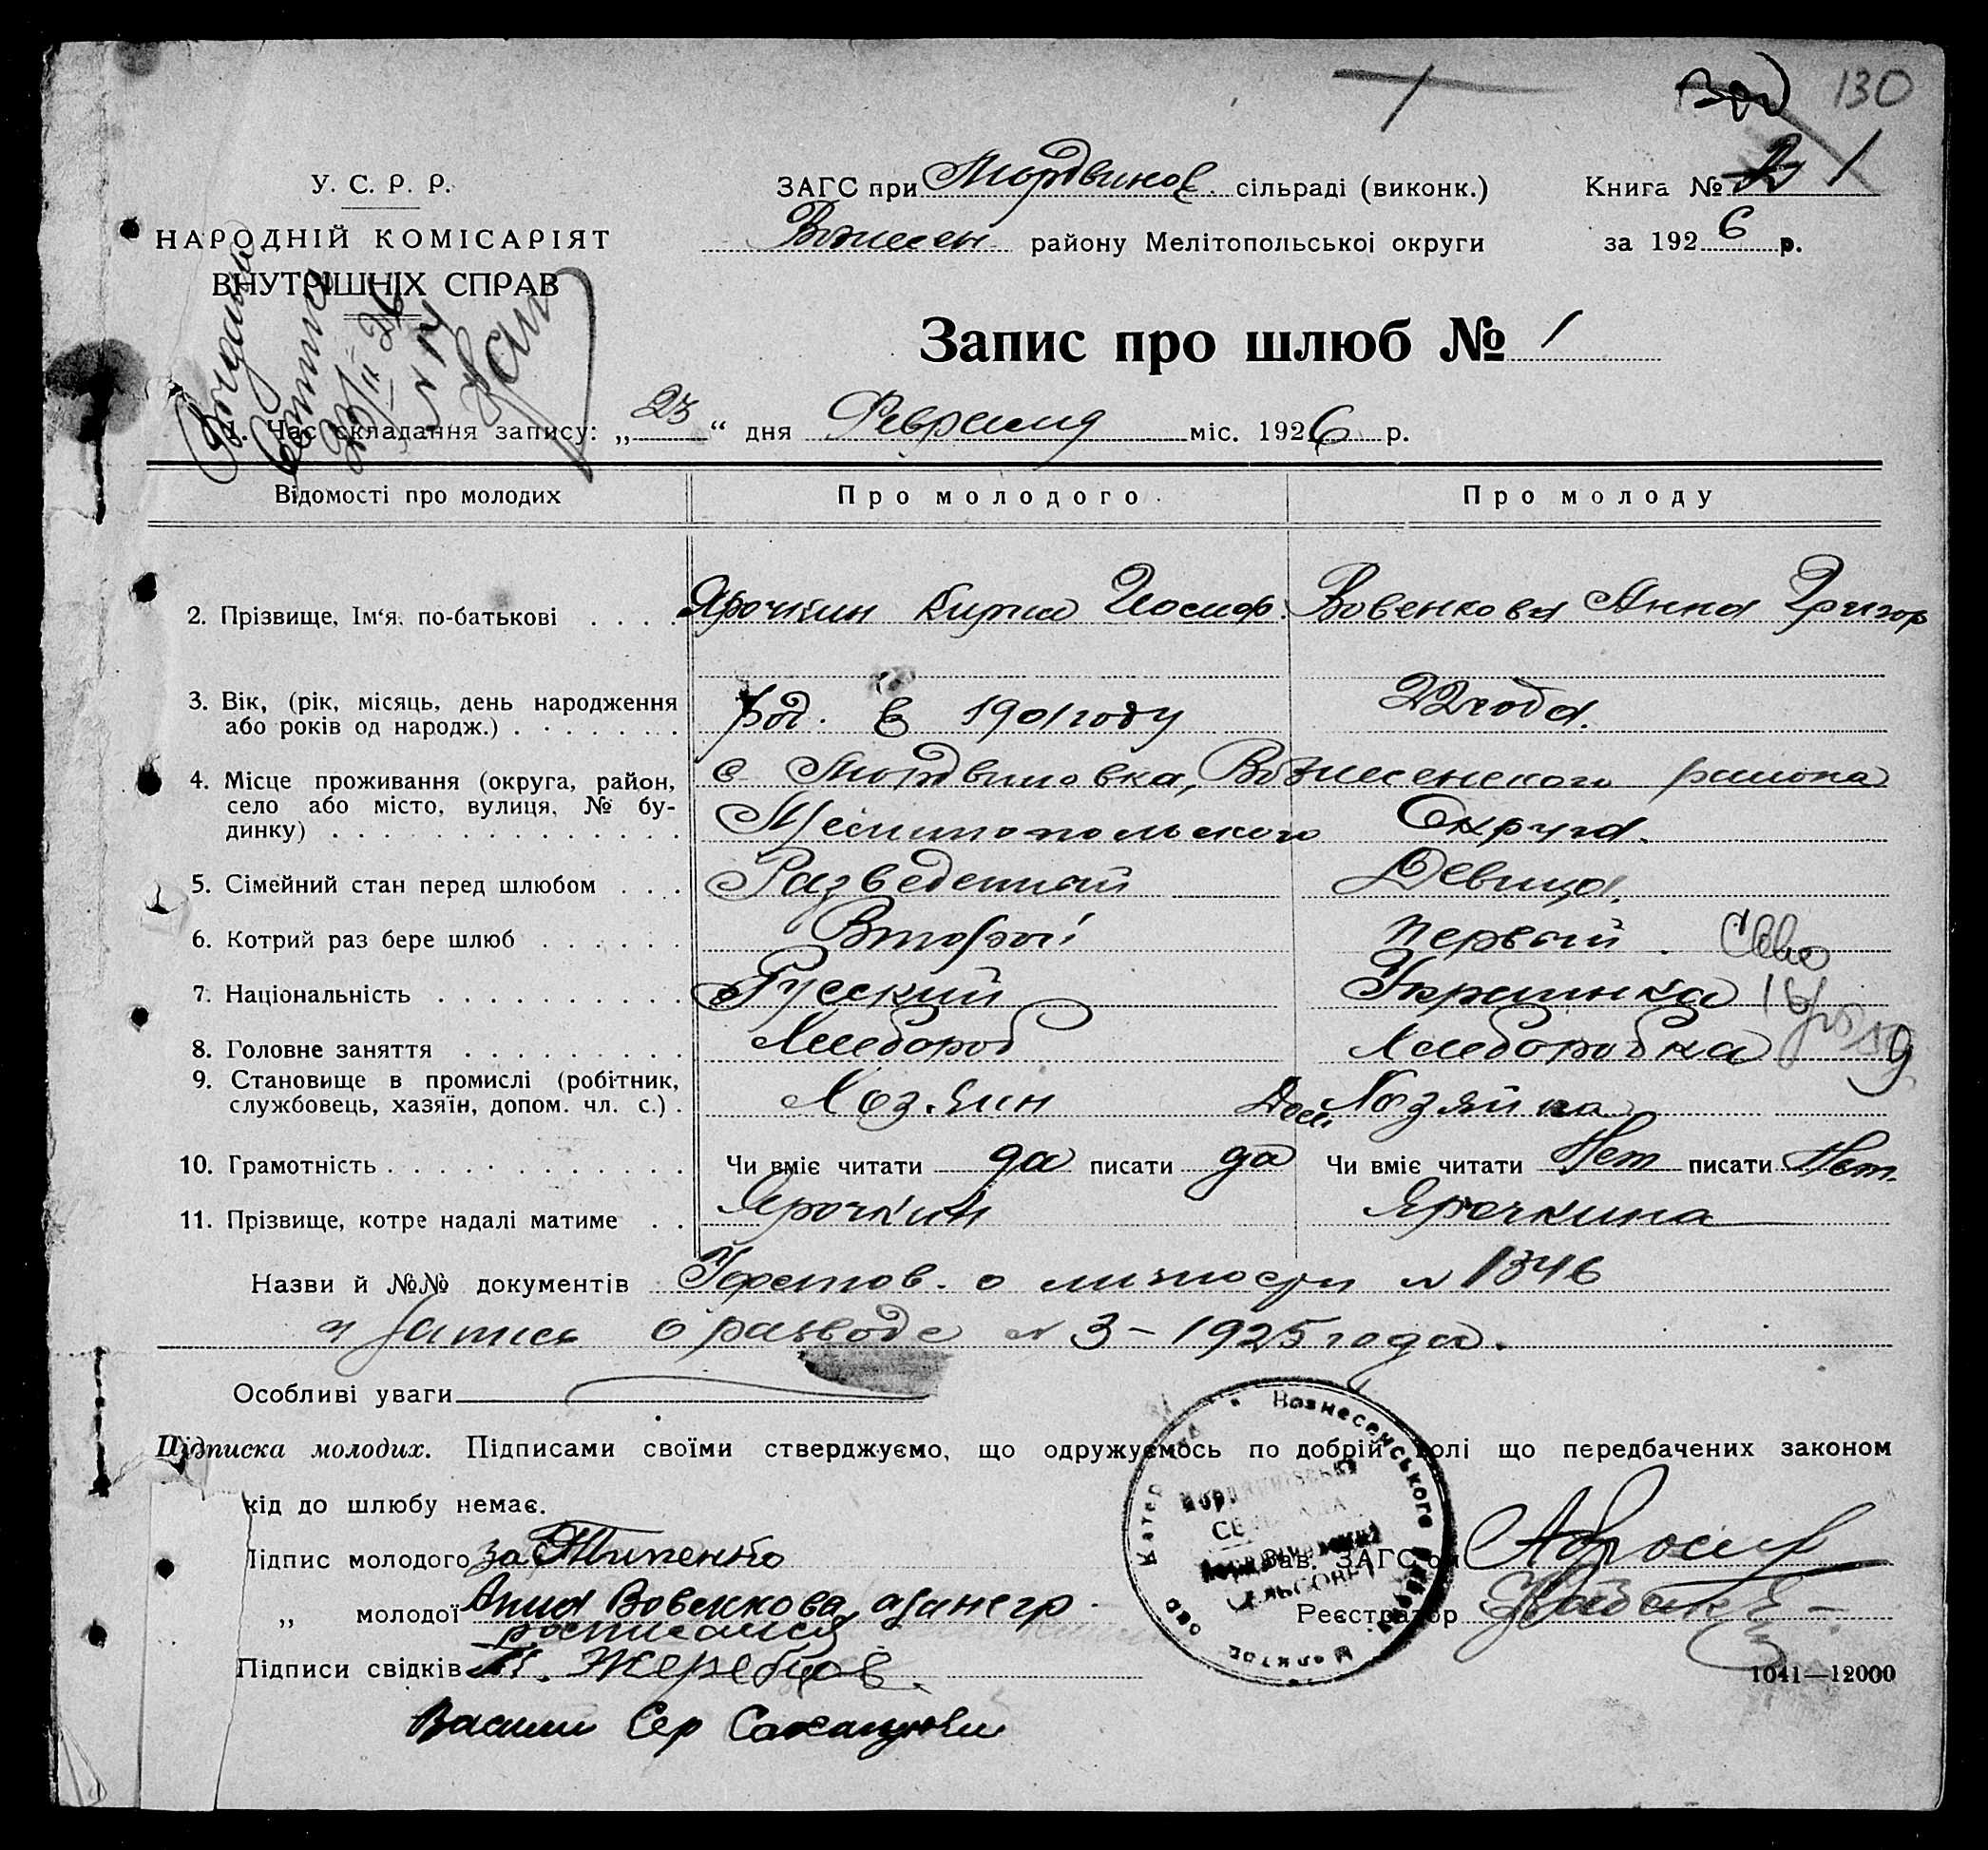 130
У. С. Р. Р.
НАРОДНІЙ КОМІСАРІЯТ
ВНУТРІШНІХ СПРАВ
ЗАГС при Мордвинов. сільраді (виконк.)
Вознесен району Мелітопольської округи
Книга № 1
за 1926 р.
Запис про шлюб № 1
1. Час складання запису: „23“ дня Февраля міс. 1926 р.
Відомості про молодих Про молодого Про молоду
2. Прізвище, Ім'я, по-батькові . . . . Ярочкин Кирил Иосиф. Вовенкова Анна Григор
3. Вік, (рік, місяць, день народження
або років од народж.) . . . . . . . род. в 1901 году 22 года.
4. Місце проживання (округа, район, с. Мордвиновка, Вознесенского района
село або місто, вулиця, № бу-
динку) . . . . . . . . . . . . . . Мелитопольского Округа.
5. Сімейний стан перед шлюбом . . . Разведенный Девица.
6. Котрий раз бере шлюб . . . . . . Второй первый.
7. Національність . . . . . . . . . . Русский Украинка
8. Головне заняття . . . . . . . . . Хлебороб Хлеборобка
9. Становище в промислі (робітник,
службовець, хазяїн, допом. чл. с.) . Хозяин Дом. Хозяйка
10. Грамотність . . . . . . . . . . . . Чи вміє читати да писати да Чи вміє читати Нет писати Нет.
11. Прізвище, котре надалі матиме . . Ярочкин Ярочкина
Назви й №№ документів Удостов. о личности № 1346
и запись о разводе № 3 – 1925 года.
Особливі уваги
Підписка молодих. Підписами своїми стверджуємо, що одружуємось по добрій волі що передбачених законом
кід до шлюбу немає.
Підпис молодого за
„ молодої Анна Вовенкова а за негр.
росписался
Підписи свідків Жеребцов.
Василий Сер
Зав. ЗАГС'ом
Реєстратор
Вознесенського
1041—12000